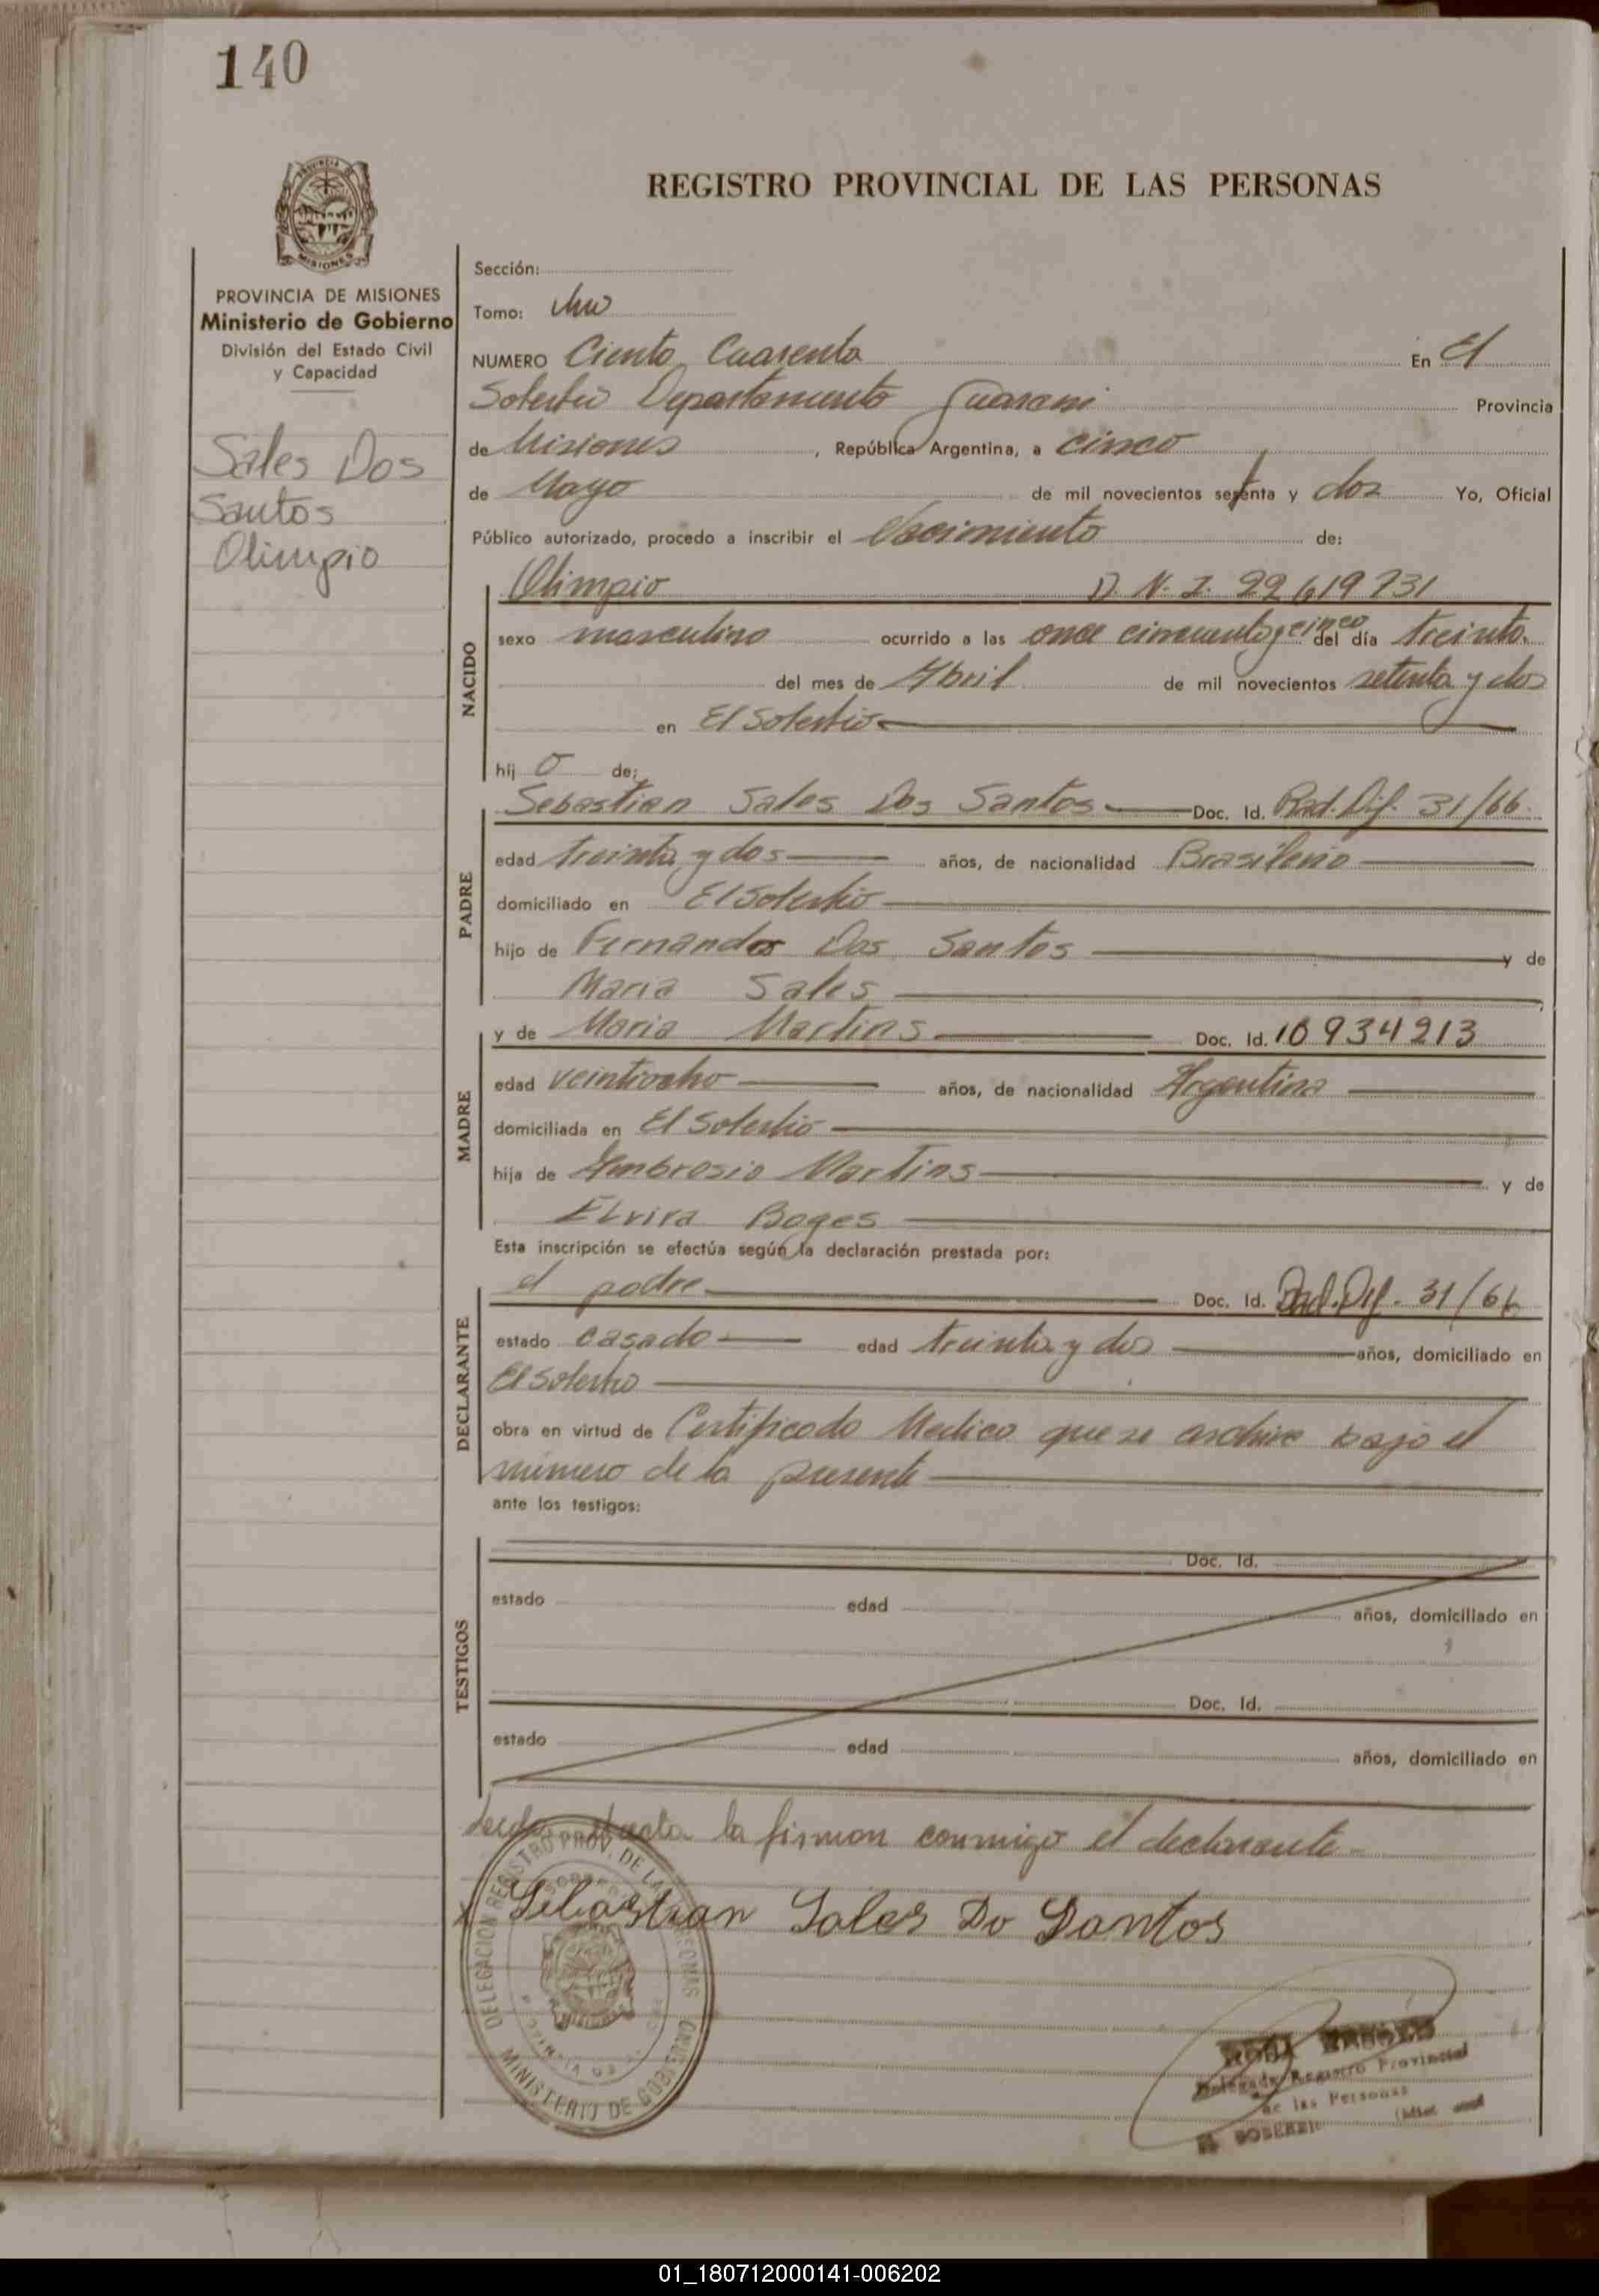 140
REGISTRO PROVINCIAL DE LAS PERSONAS
MISIONES
PROVINCIA DE MISIONES
Ministerio de Gobierno
División del Estado Civil
y Capacidad
Sales Dos
Santos
Olimpio
Sección:
Tomo: Uno
NUMERO Ciento Cuarenta En El
Soberbio Departamento Guarani Provincia
de Misiones, República Argentina, a cinco
de Mayo de mil novecientos setenta y dos Yo, Oficial
Público autorizado, procedo a inscribir el Nacimiento de:
NACIDO
Olimpio D. N. I. 22 619 731
sexo masculino ocurrido a las once cincuenta y cinco del día treinta
del mes de Abril de mil novecientos setenta y dos
en El Soberbio
hij o de:
PADRE
Sebastian Sales Dos Santos Doc. Id. Rad. Dif. 31/66
edad treinta y dos años, de nacionalidad Brasileño
domiciliado en El Soberbio
hijo de Fernando Dos Santos y de
Maria Sales
MADRE
y de Maria Martins Doc. Id. 10934213
edad veintiocho años, de nacionalidad Argentina
domiciliada en El Soberbio
hija de Ambrosio Martins y de
Elvira Boges
Esta inscripción se efectúa según la declaración prestada por:
DECLARANTE
el padre Doc. Id. Rad. Dif. 31/66
estado casado edad treinta y dos años, domiciliado en
El Soberbio
obra en virtud de Certificado Medico que se archiva bajo el
número de la presente
ante los testigos:
TESTIGOS
Doc. Id.
estado edad años, domiciliado en
Doc. Id.
estado edad años, domiciliado en
Leida acta la firman conmigo el declarante
Sebastian Sales Do Santos
DELEGACION REGISTRO PROV. DE LAS PERSONAS
MINISTERIO DE GOBIERNO
Delegado Registro Provincial
de las Personas
EL SOBERBIO
01_180712000141-006202